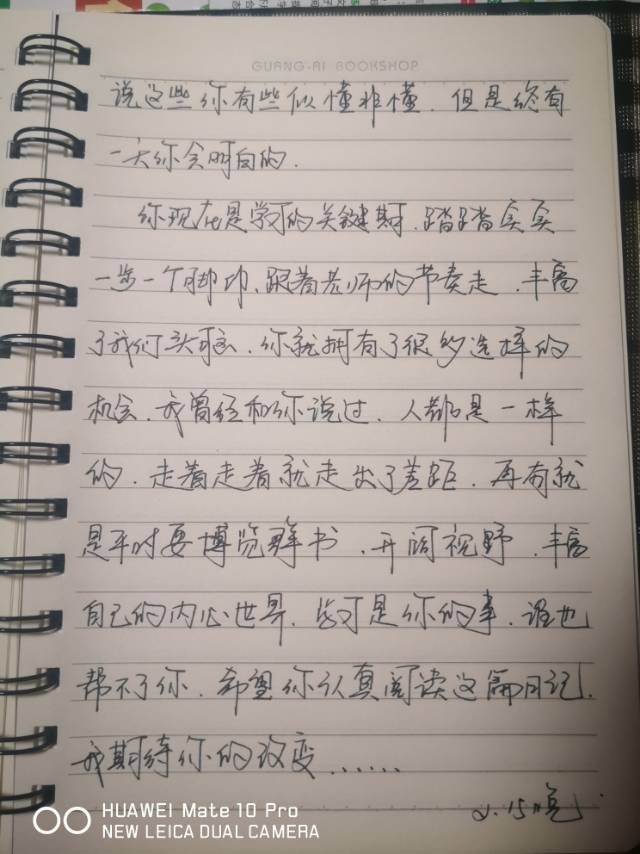 GUANG-AI BOOKSHOP
说这些你有些似懂非懂．但是终有
一天你会明白的．
你现在是学习的关键期．踏踏实实
一步一个脚印、跟着老师的节奏走．丰富
了我们头脑、你就拥有了很多选择的
机会．我曾经和你说过．人都是一样
的．走着走着就走出了差距．再有就
是平时要博览群书．开阔视野．丰富
自己的内心世界．学习是你的事．谁也
帮不了你．希望你认真阅读这篇日记．
我期待你的改变……
2.15晚
HUAWEI Mate 10 Pro
NEW LEICA DUAL CAMERA